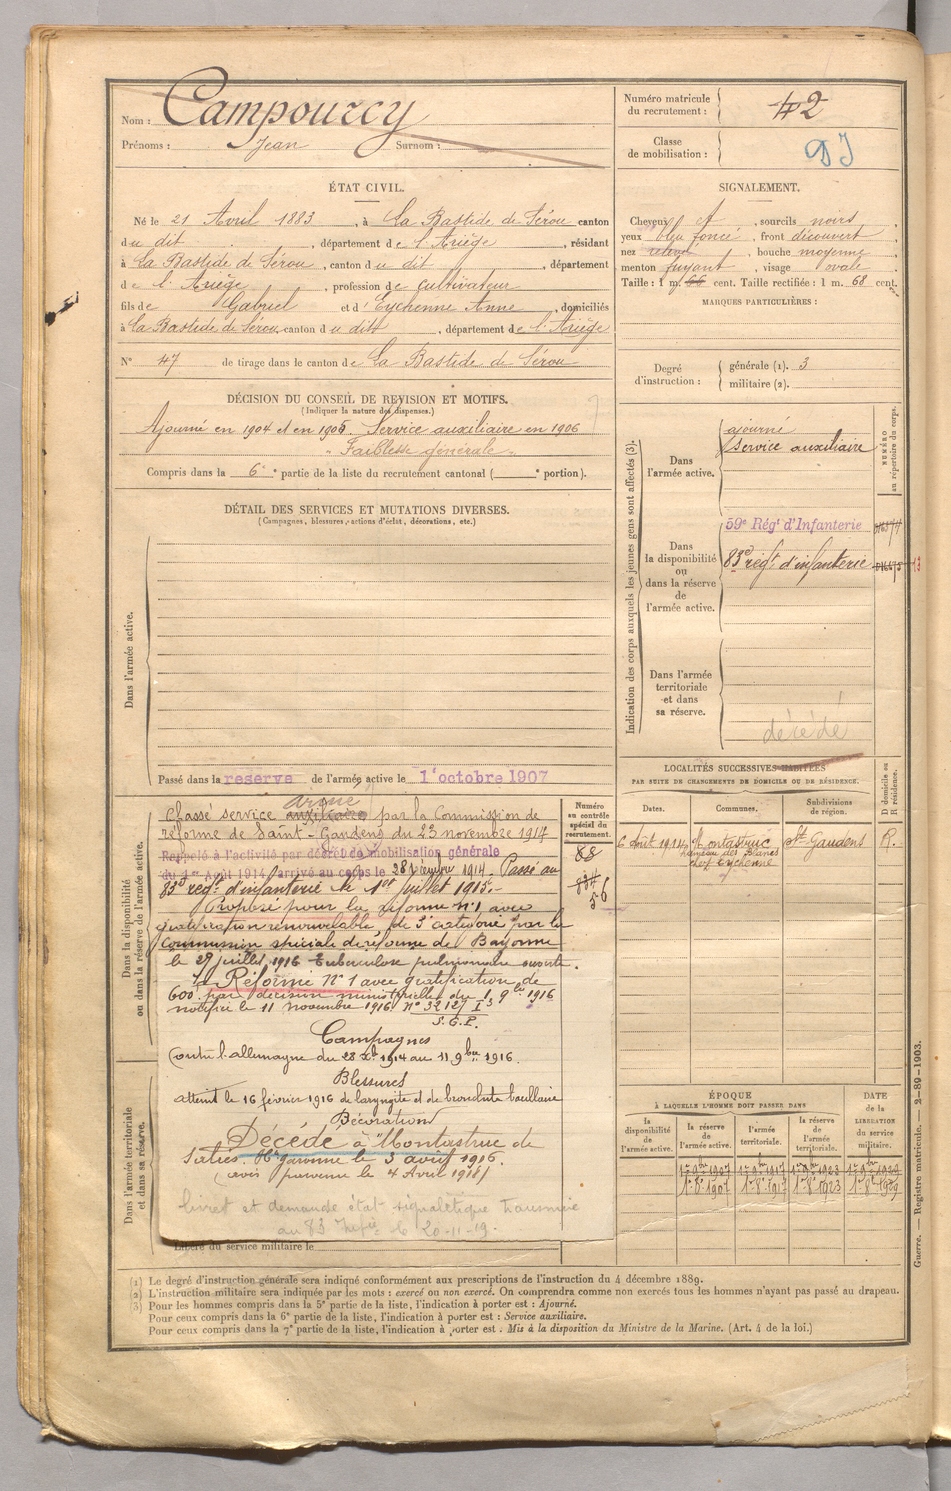 Nom : Campourcy
Prénoms : Jean Surnom :
Numéro matricule du recrutement : 42
Classe de mobilisation :
ÉTAT CIVIL.
Né le 21 Avril 1883, à La Bastide de Sérou canton
du dit, département de l'Ariège, résidant
à La Bastide de Sérou, canton du dit, département
de l'Ariège, profession de cultivateur
fils de Gabriel et d'Eychenne Anne, domiciliés
à La Bastide de Sérou, canton du dit, département de l'Ariège
N° 47 de tirage dans le canton de La Bastide de Sérou
SIGNALEMENT.
Cheveux, sourcils noirs
yeux bleu foncé, front découvert
nez relevé, bouche moyenne
menton fuyant, visage ovale
Taille : 1 m. 66 cent. Taille rectifiée : 1 m. 68 cent.
MARQUES PARTICULIÈRES :
Degré d'instruction : générale (1). 3
militaire (2).
DÉCISION DU CONSEIL DE REVISION ET MOTIFS.
(Indiquer la nature des dispenses.)
Ajourné en 1904 et en 1905. Service auxiliaire en 1906
"Faiblesse générale"
Compris dans la 6e partie de la liste du recrutement cantonal ( e portion).
DÉTAIL DES SERVICES ET MUTATIONS DIVERSES.
(Campagnes, blessures, actions d'éclat, décorations, etc.)
Dans l'armée active.
Passé dans la reserve de l'armée active le 1er octobre 1907
Indication des corps auxquels les jeunes gens sont affectés (3).
NUMÉRO au répertoire du corps.
Dans l'armée active.
ajourné
Service auxiliaire
Dans la disponibilité ou dans la réserve de l'armée active.
59e Régt d'Infanterie
83e régt d'infanterie
Dans l'armée territoriale et dans sa réserve.
décédé
LOCALITÉS SUCCESSIVES HABITÉES
PAR SUITE DE CHANGEMENTS DE DOMICILE OU DE RÉSIDENCE.
Dates. Communes. Subdivisions de région. D domicile ou R résidence.
6 Août 1914 Montastruc St Gaudens R.
chez Eychenne
Dans la disponibilité ou dans la réserve de l'armée active.
Numéro au contrôle spécial du recrutement.
88
armé
Classé service auxiliaire par la Commission de
réforme de Saint-Gaudens du 23 novembre 1914
Rappelé à l'activité par décret de mobilisation générale
du 1er Août 1914 arrivé au corps le 28 décembre 1914. Passé au
83e régt d'infanterie le 1er juillet 1915.
Proposé pour la réforme n°1 avec
gratification renouvelable de 5e catégorie par la
commission spéciale de réforme de Bayonne
le 29 juillet 1916 tuberculose pulmonaire ouverte.
Réformé N°1 avec gratification de
600f par décision ministérielle du 1. 9bre 1916
notifiée le 11 novembre 1916. N° 32127 I3
S.G.P.
Campagnes
Contre l'allemagne du 28 Xbre 1914 au 11 9bre 1916.
Blessures
atteint le 16 février 1916 de laryngite et de bronchite bacillaire
Décoration
Décédé à Montastruc de
Salies. Hte Garonne le 3 avril 1916.
(avis parvenu le 4 Avril 1918)
livret et demande état signalétique transmise
au 83 Infie le 20-11-19.
Dans l'armée territoriale et dans sa réserve.
Libéré du service militaire le
ÉPOQUE
À LAQUELLE L'HOMME DOIT PASSER DANS
la disponibilité de l'armée active. la réserve de l'armée active. l'armée territoriale. la réserve de l'armée territoriale.
DATE de la LIBÉRATION du service militaire.
1er 9bre 1907 1er 9bre 1917 1er 9bre 1923 1er 9bre 1929
1er 8bre 1907 1er 8bre 1917 1er 8bre 1923 1er 8bre 1929
Guerre. — Registre matricule. — 2-89-1903.
(1) Le degré d'instruction générale sera indiqué conformément aux prescriptions de l'instruction du 4 décembre 1889.
(2) L'instruction militaire sera indiquée par les mots : exercé ou non exercé. On comprendra comme non exercés tous les hommes n'ayant pas passé au drapeau.
(3) Pour les hommes compris dans la 5e partie de la liste, l'indication à porter est : Ajourné.
Pour ceux compris dans la 6e partie de la liste, l'indication à porter est : Service auxiliaire.
Pour ceux compris dans la 7e partie de la liste, l'indication à porter est : Mis à la disposition du Ministre de la Marine. (Art. 4 de la loi.)